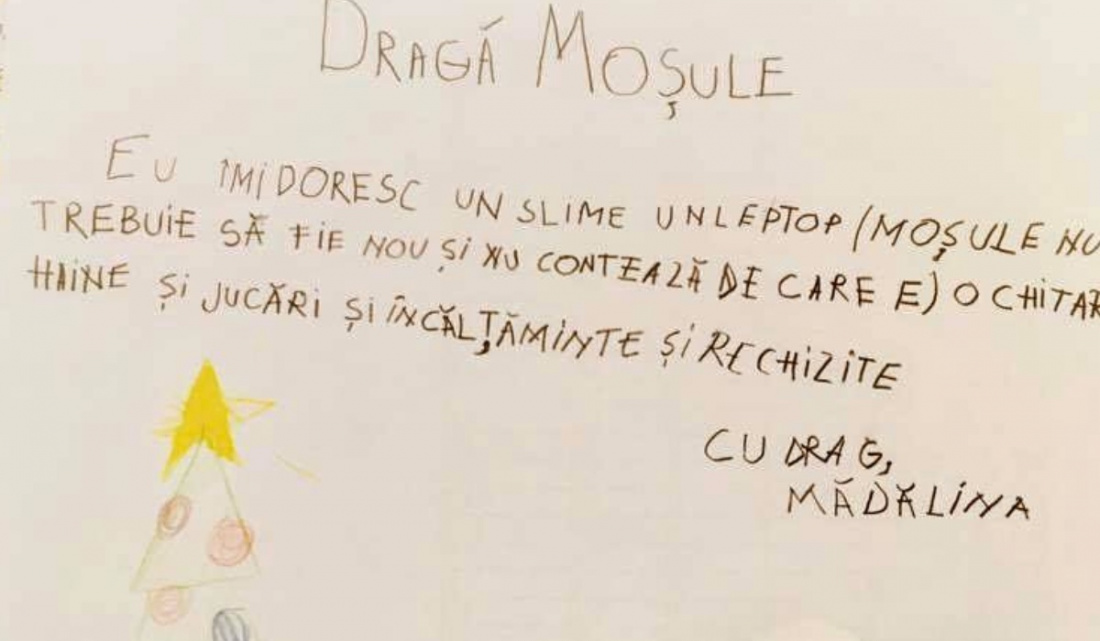 DRAGÁ MOȘULE
EU ÎMI DORESC UN SLIME UN LEPTOP (MOȘULE NU
TREBUIE SĂ FIE NOU ȘI NU CONTEAZĂ DE CARE E) O CHITAR
HAINE ȘI JUCĂRI ȘI ÎNCĂLȚĂMINTE ȘI RECHIZITE
CU DRAG,
MĂDĂLINA